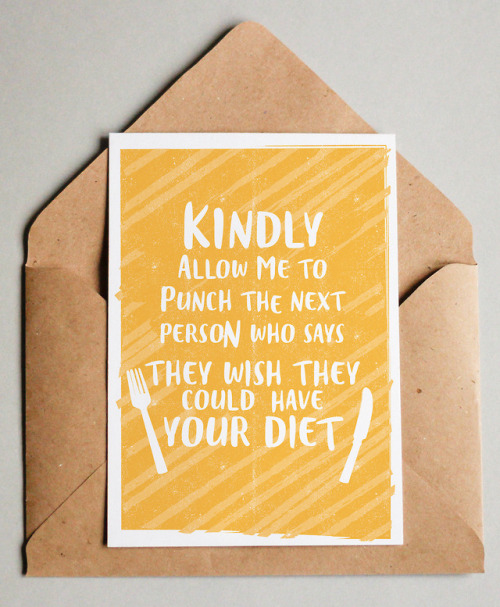 KINDLY
ALLOW ME TO
PUNCH THE NEXT
PERSON WHO SAYS
THEY WISH THEY
COULD HAVE
YOUR DIET